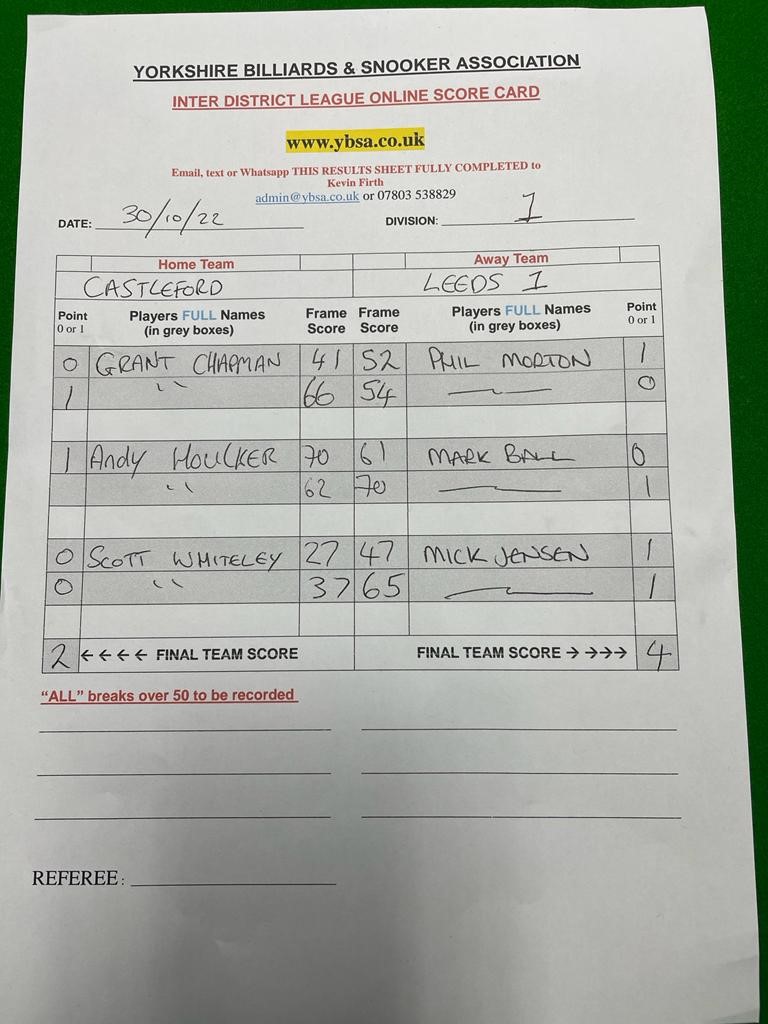 YORKSHIRE BILLIARDS & SNOOKER ASSOCIATION
INTER DISTRICT LEAGUE ONLINE SCORE CARD
www.ybsa.co.uk
Email, text or Whatsapp THIS RESULTS SHEET FULLY COMPLETED to
Kevin Firth
admin@ybsa.co.uk or 07803 538829
DATE: 30/10/22 DIVISION: 1
Home Team Away Team
CASTLEFORD LEEDS 1
Point 0 or 1 Players FULL Names (in grey boxes) Frame Score Frame Score Players FULL Names (in grey boxes) Point 0 or 1
0 GRANT CHAPMAN 41 52 PHIL MORTON 1
1 " 66 54 — 0
1 Andy HOULKER 70 61 MARK BALL 0
" 62 70 — 1
0 SCOTT WHITELEY 27 47 MICK JENSEN 1
0 " 37 65 — 1
2 ←←←← FINAL TEAM SCORE FINAL TEAM SCORE →→→→ 4
“ALL” breaks over 50 to be recorded
REFEREE: